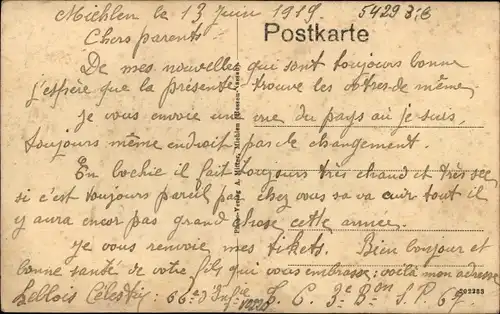 Miehlen le 13 Juin 1919. 5429
Postkarte
Chers parents
De mes nouvelles qui sont toujours bonne
j'espère que la présente trouve les votres de même,
je vous envoie une vue du pays où je suis,
toujours même endroit pas de changement.
En bochie il fait toujours très chaud et très sec
si c'est toujours pareil par chez vous sa va cuir tout il
y aura encor pas grand chose cette année.
je vous renvoie mes tikets. Bien bonjour et
bonne santé de votre fils qui vous embrasse: voilà mon adresse
Leblois Célestin: 66e d'Infie S. C. 3e Bon S. P. 69.
Verlag A. Miehlen